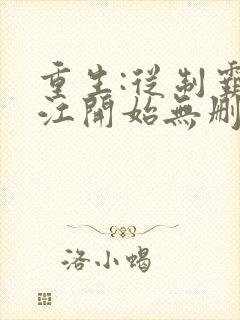 重生:從制霸
江開始無刪
洛小蝎